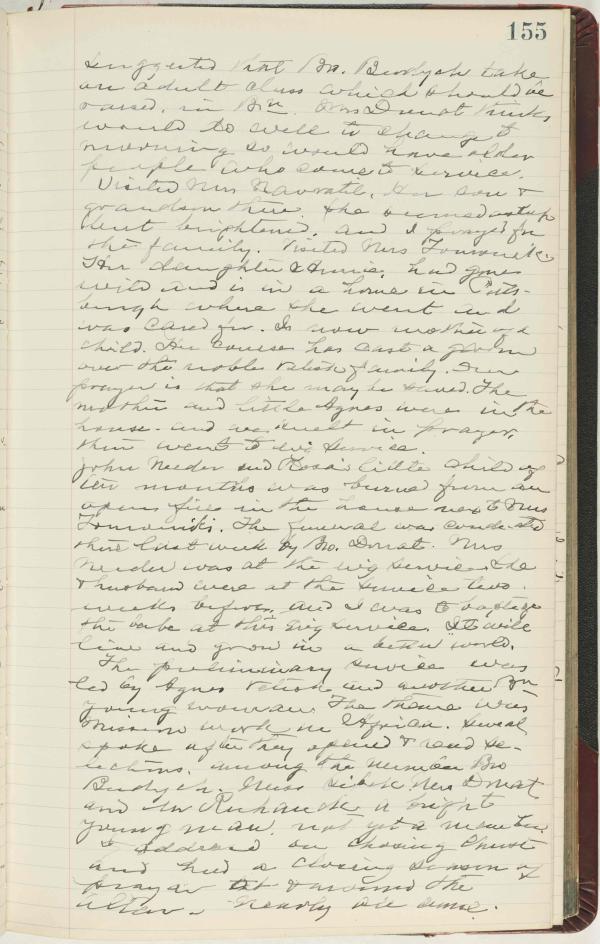 155
suggested that Bro. Budysh take
an adult class which should be
raised, in Bn. Mrs Donat thinks
would do well to change to
morning so would have older
people who come to service.
Visited Mrs Navratil. Her son &
grandson there. She seemed
but brightened, and I prayed for
the family. Visited Mrs
Her daughter Annie, had gone
wild and is in a home in Pitts-
burgh where she went and
was cared for. Is now mother of a
child. Her course has cast a gloom
over the noble family. Our
prayer is that she may be saved. The
mother and little Agnes were in the
house and we knelt in prayer,
then went to evg service.
John Neider and Rosa's little child of
ten months was burned from an
open fire in the house next to Mrs
The funeral was conducted
there last week by Bro. Donat. Mrs
Neider was at the evg service. She
& husband were at the service two
weeks before, and I was to baptize
the babe at this evg service. It will
live and grow in a better world.
The preliminary service was
led by Agnes and another Bn
young woman. The theme was
Mission work in Africa. Several
spoke after they opened & read se-
lections, among the number Bro
Budysh, Miss Mrs Donat
and Mr a bright
young man, not yet a member.
I address on Chosing Christ
and had a closing season of
prayer at & around the
altar. Nearly all came.